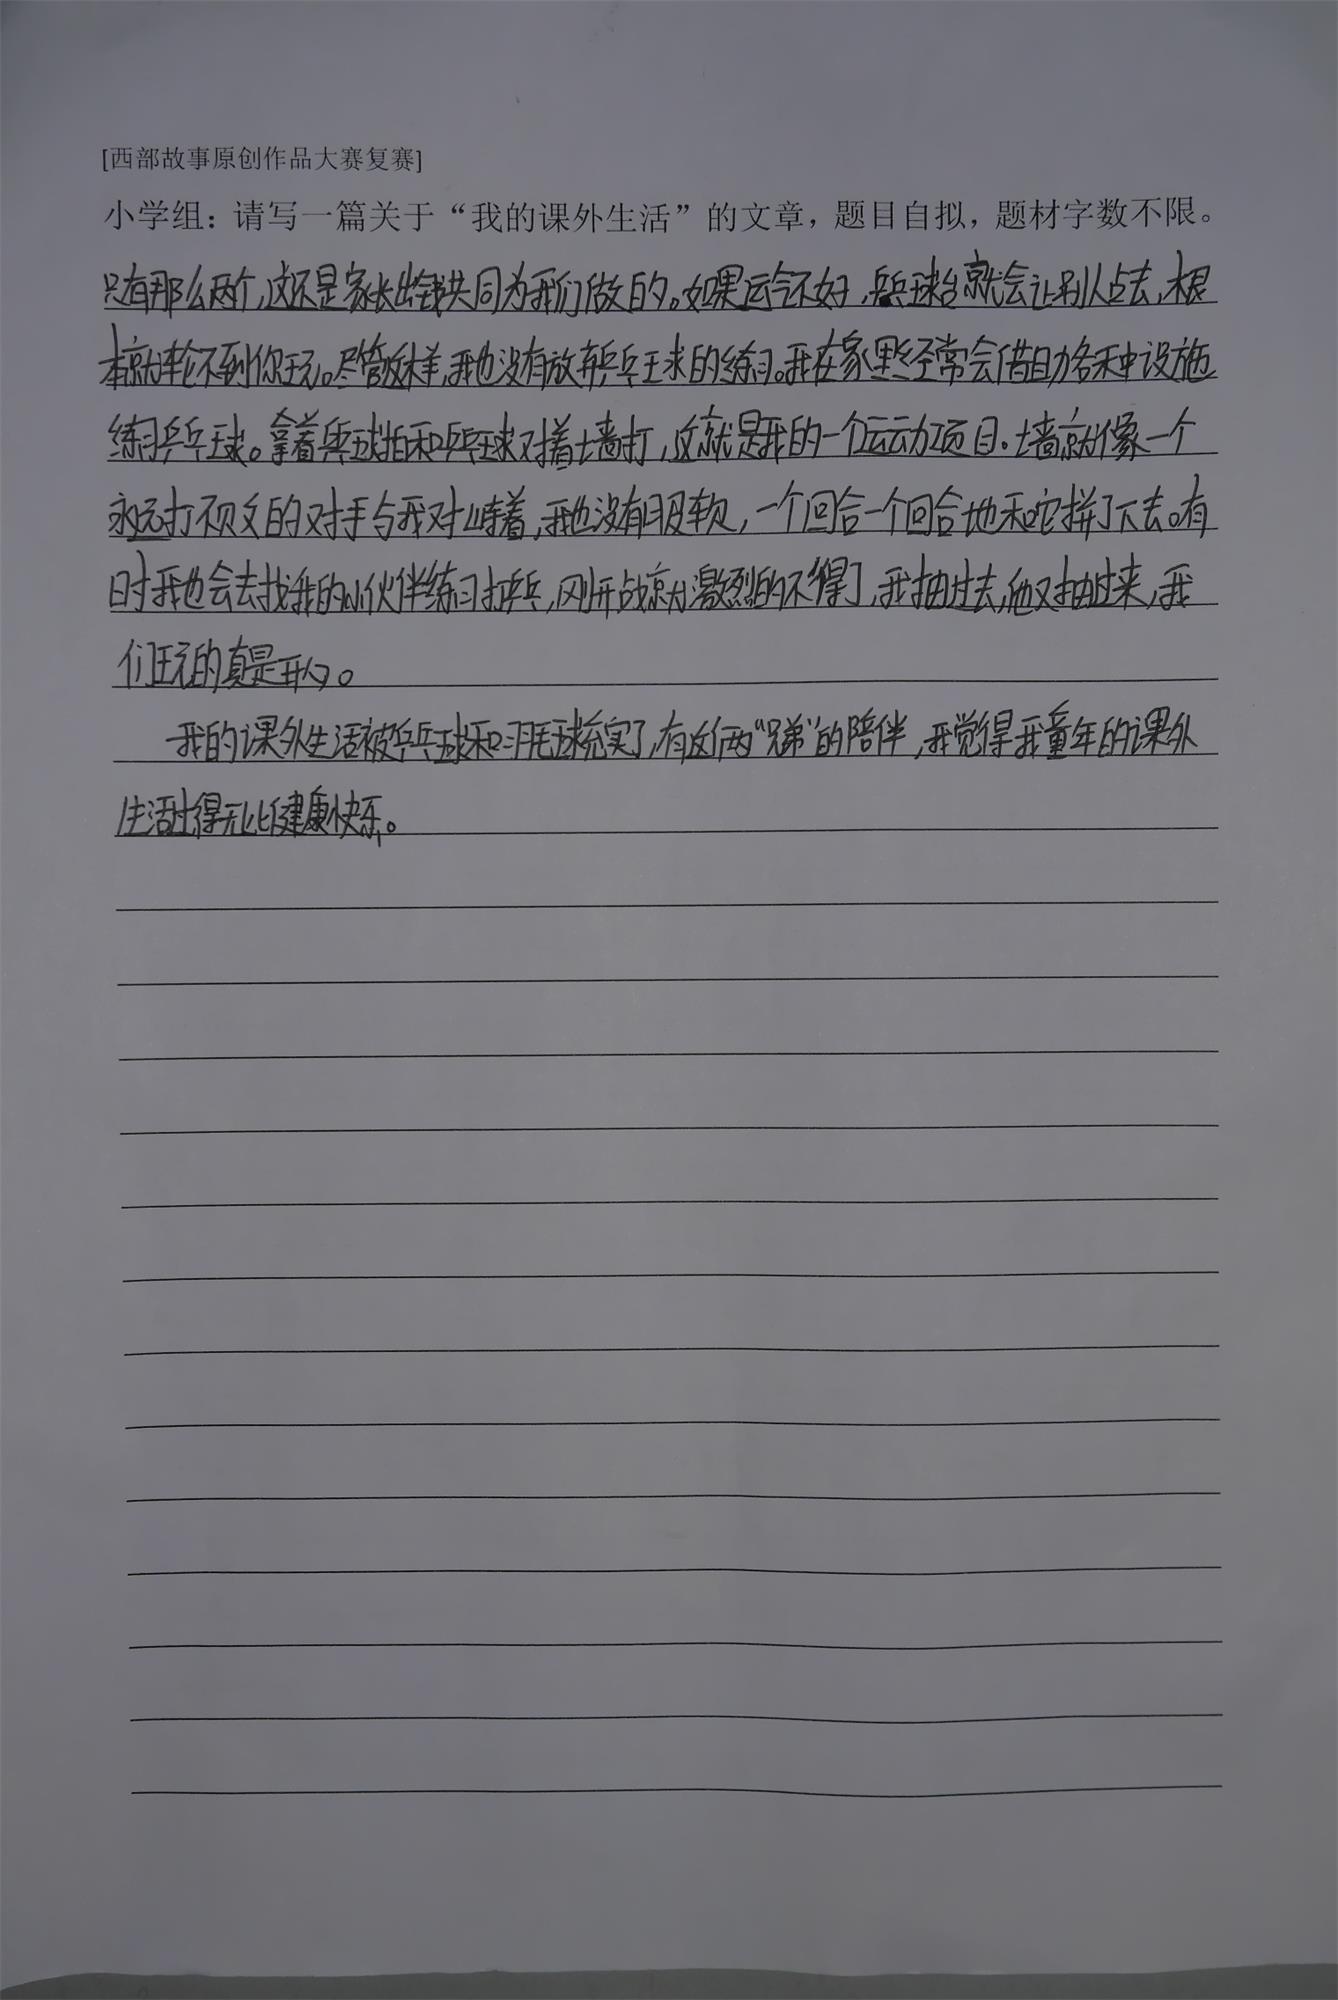 [西部故事原创作品大赛复赛]
小学组：请写一篇关于“我的课外生活”的文章，题目自拟，题材字数不限。
只有那么两个，这还是家长出钱共同为我们做的。如果运气不好，乒乓球台就会让别人占去，根
本就轮不到你玩。尽管这样，我也没有放弃乒乓球的练习。我在家里经常会借助各种设施
练习乒乓球。拿着乒乓球拍和乒乓球对着墙打，这就是我的一个运动项目。墙就像一个
永远打不败的对手与我对峙着，我也没有服软，一个回合一个回合地和它拼了下去。有
时我也会去找我的小伙伴练习打乒乓，刚开战就激烈的不得了，我抽过去，他又抽过来，我
们玩的真是开心。
我的课外生活被乒乓球和羽毛球充实了，有这俩“兄弟”的陪伴，我觉得我童年的课外
生活过得无比健康快乐。